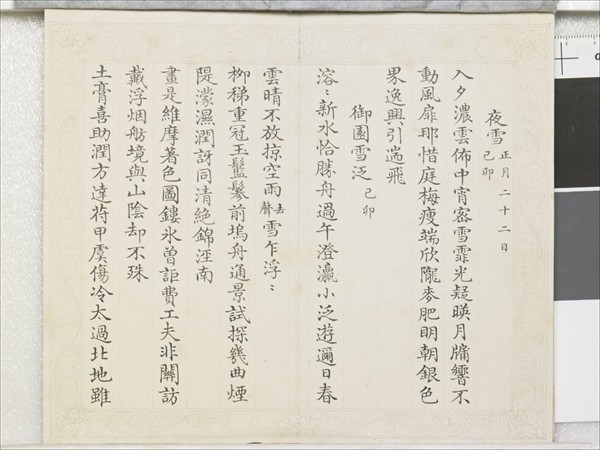 夜雪 正月二十二日
己卯
入夕濃雲佈中宵密雪霏光疑暎月牗響不
動風扉那惜庭梅瘦端欣隴麥肥明朝銀色
界逸興引遄飛
御園雪泛 己卯
溶〻新水恰勝舟過午澄瀛小泛遊邇日春
雲晴不放掠空雨去聲雪乍浮〻
柳稊重冠玉䰐鬖前塢舟通景試探幾曲煙
隄濛濕潤訝同清絕錦涇南
畫是維摩著色圖鏤氷曾詎費工夫非關訪
戴浮烟舫境與山陰却不殊
土膏喜助潤方達苻甲虞傷冷太過北地雖